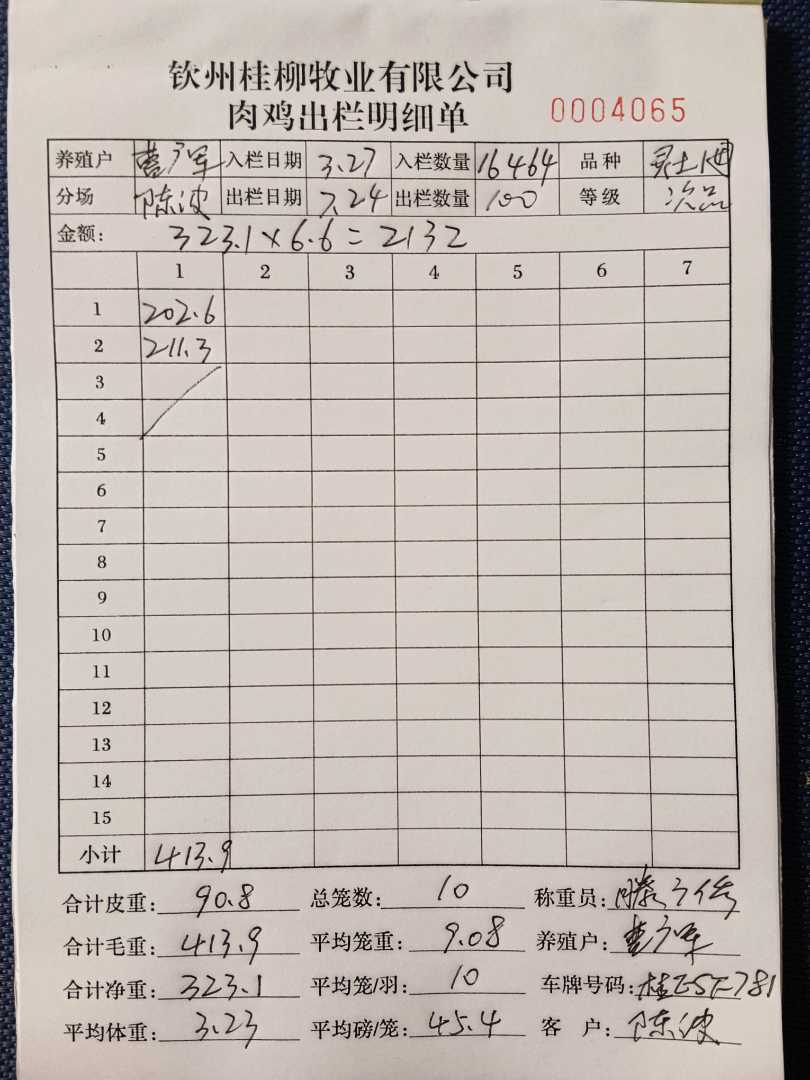 钦州桂柳牧业有限公司
肉鸡出栏明细单 0004065
养殖户 曹广军 入栏日期 3.27 入栏数量 16464 品种 灵土
分场 陈波 出栏日期 7.24 出栏数量 100 等级 次品
金额: 323.1×6.6=2132
1 2 3 4 5 6 7
1 202.6
2 211.3
3
4
5
6
7
8
9
10
11
12
13
14
15
小计 413.9
合计皮重: 90.8 总笼数: 10 称重员: 滕广
合计毛重: 413.9 平均笼重: 9.08 养殖户: 曹广军
合计净重: 323.1 平均笼/羽: 10 车牌号码:
平均体重: 3.23 平均磅/笼: 45.4 客户: 陈波